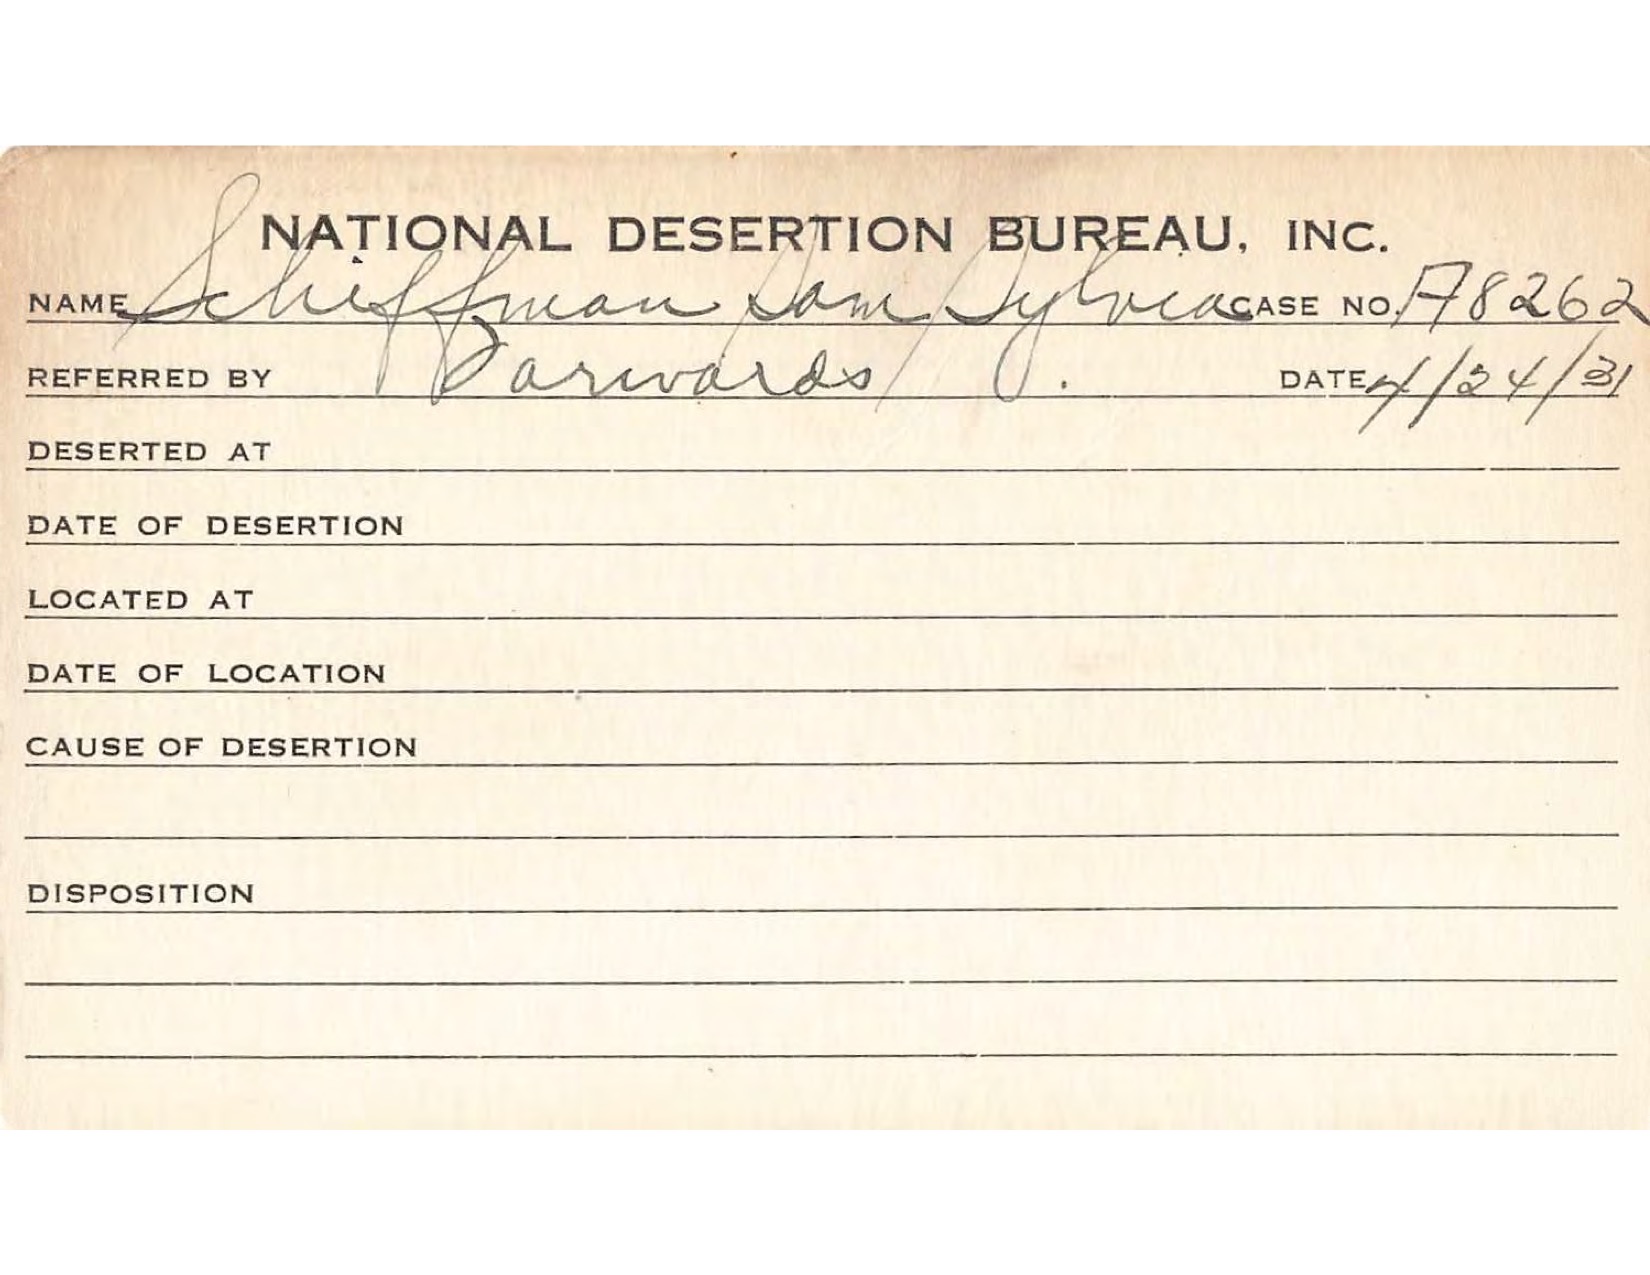 NATIONAL DESERTION BUREAU, INC.
NAME Schiffman Sam Sylvia CASE NO. A8262
REFERRED BY Forwards DATE 4/24/31
DESERTED AT
DATE OF DESERTION
LOCATED AT
DATE OF LOCATION
CAUSE OF DESERTION
DISPOSITION